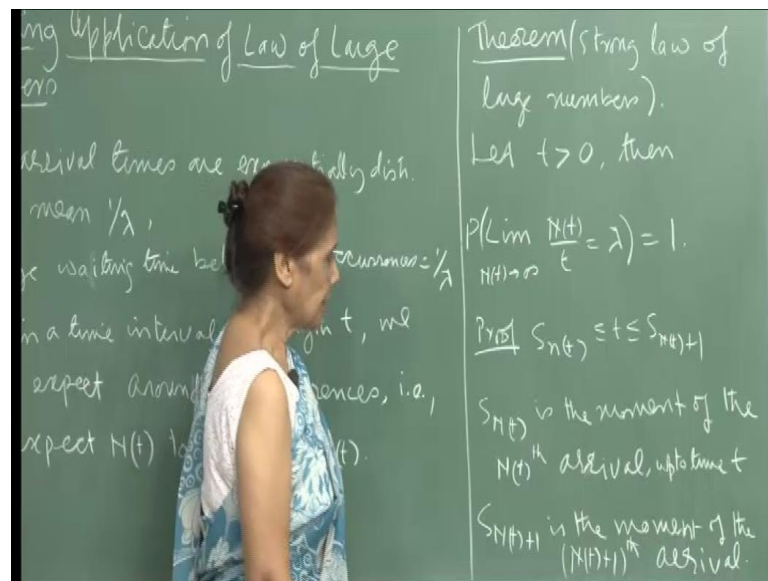 ing Application of Law of Large
ers
arrival times are exponentially dish.
mean 1/λ,
ge waiting time be occurrences = 1/λ
in a time interval t, we
expect around ences, i.e.,
xpect N(t) to (t).
Theorem (Strong law of
large numbers).
Let t > 0, then
P(Lim N(t)/t = λ) = 1.
N(t)→∞
Proof S_N(t) ≤ t ≤ S_N(t)+1
S_N(t) is the moment of the
N(t)th arrival, upto time t
S_N(t)+1 is the moment of the
(N(t)+1)th arrival.